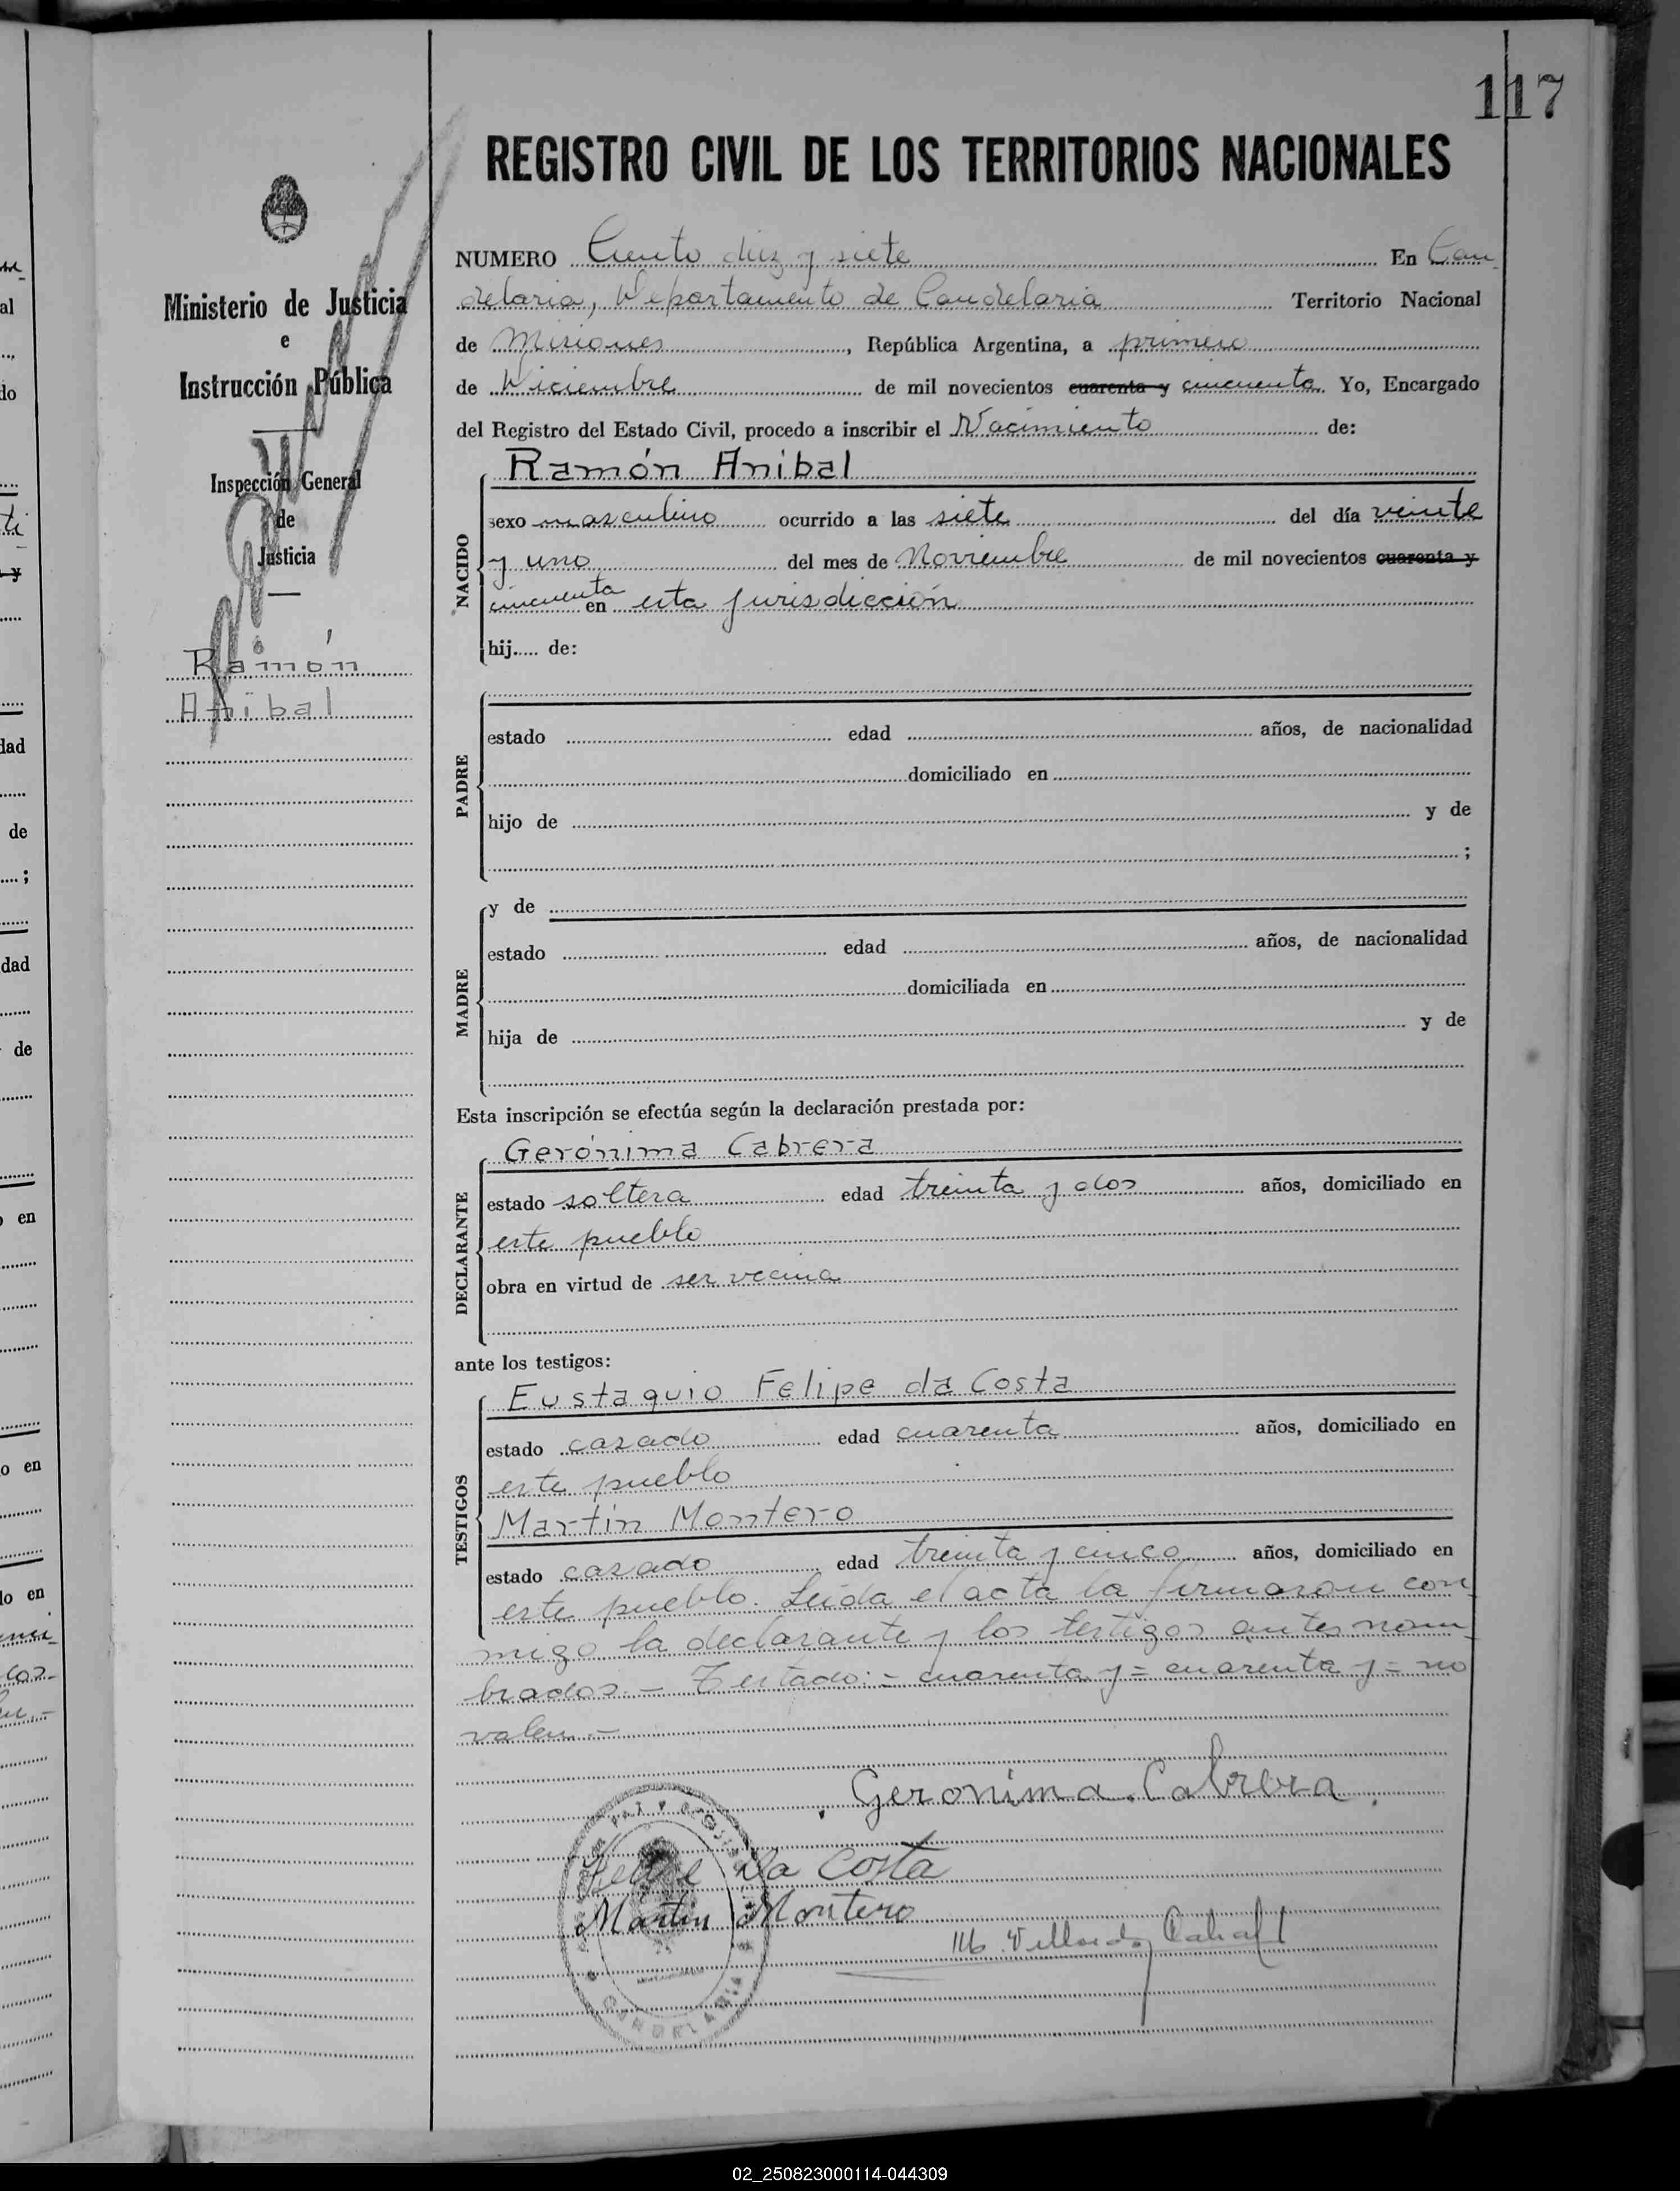 117
REGISTRO CIVIL DE LOS TERRITORIOS NACIONALES
Ministerio de Justicia
e
Instrucción Pública
Inspección General
de
Justicia
Ramón
Anibal
NUMERO Ciento diez y siete En Can-
delaria, Departamento de Candelaria Territorio Nacional
de Misiones, República Argentina, a primero
de Diciembre de mil novecientos cuarenta y cincuenta. Yo, Encargado
del Registro del Estado Civil, procedo a inscribir el Nacimiento de:
Ramón Anibal
NACIDO
sexo masculino ocurrido a las siete del día veinte
y uno del mes de Noviembre de mil novecientos cuarenta y
cincuenta en esta jurisdicción
hij..... de:
PADRE
estado edad años, de nacionalidad
domiciliado en
hijo de y de
;
MADRE
y de
estado edad años, de nacionalidad
domiciliada en
hija de y de
Esta inscripción se efectúa según la declaración prestada por:
DECLARANTE
Gerónima Cabrera
estado soltera edad treinta y dos años, domiciliado en
este pueblo
obra en virtud de ser vecina
ante los testigos:
TESTIGOS
Eustaquio Felipe da Costa
estado casado edad cuarenta años, domiciliado en
este pueblo
Martin Montero
estado casado edad treinta y cinco años, domiciliado en
este pueblo. Leida el acta la firmaron con-
migo la declarante y los testigos antes nom-
brados.- Testado:- cuarenta y = cuarenta y = no
valen.-
Geronima Cabrera
Felipe Da Costa
Martin Montero
CANDELARIA
02_250823000114-044309